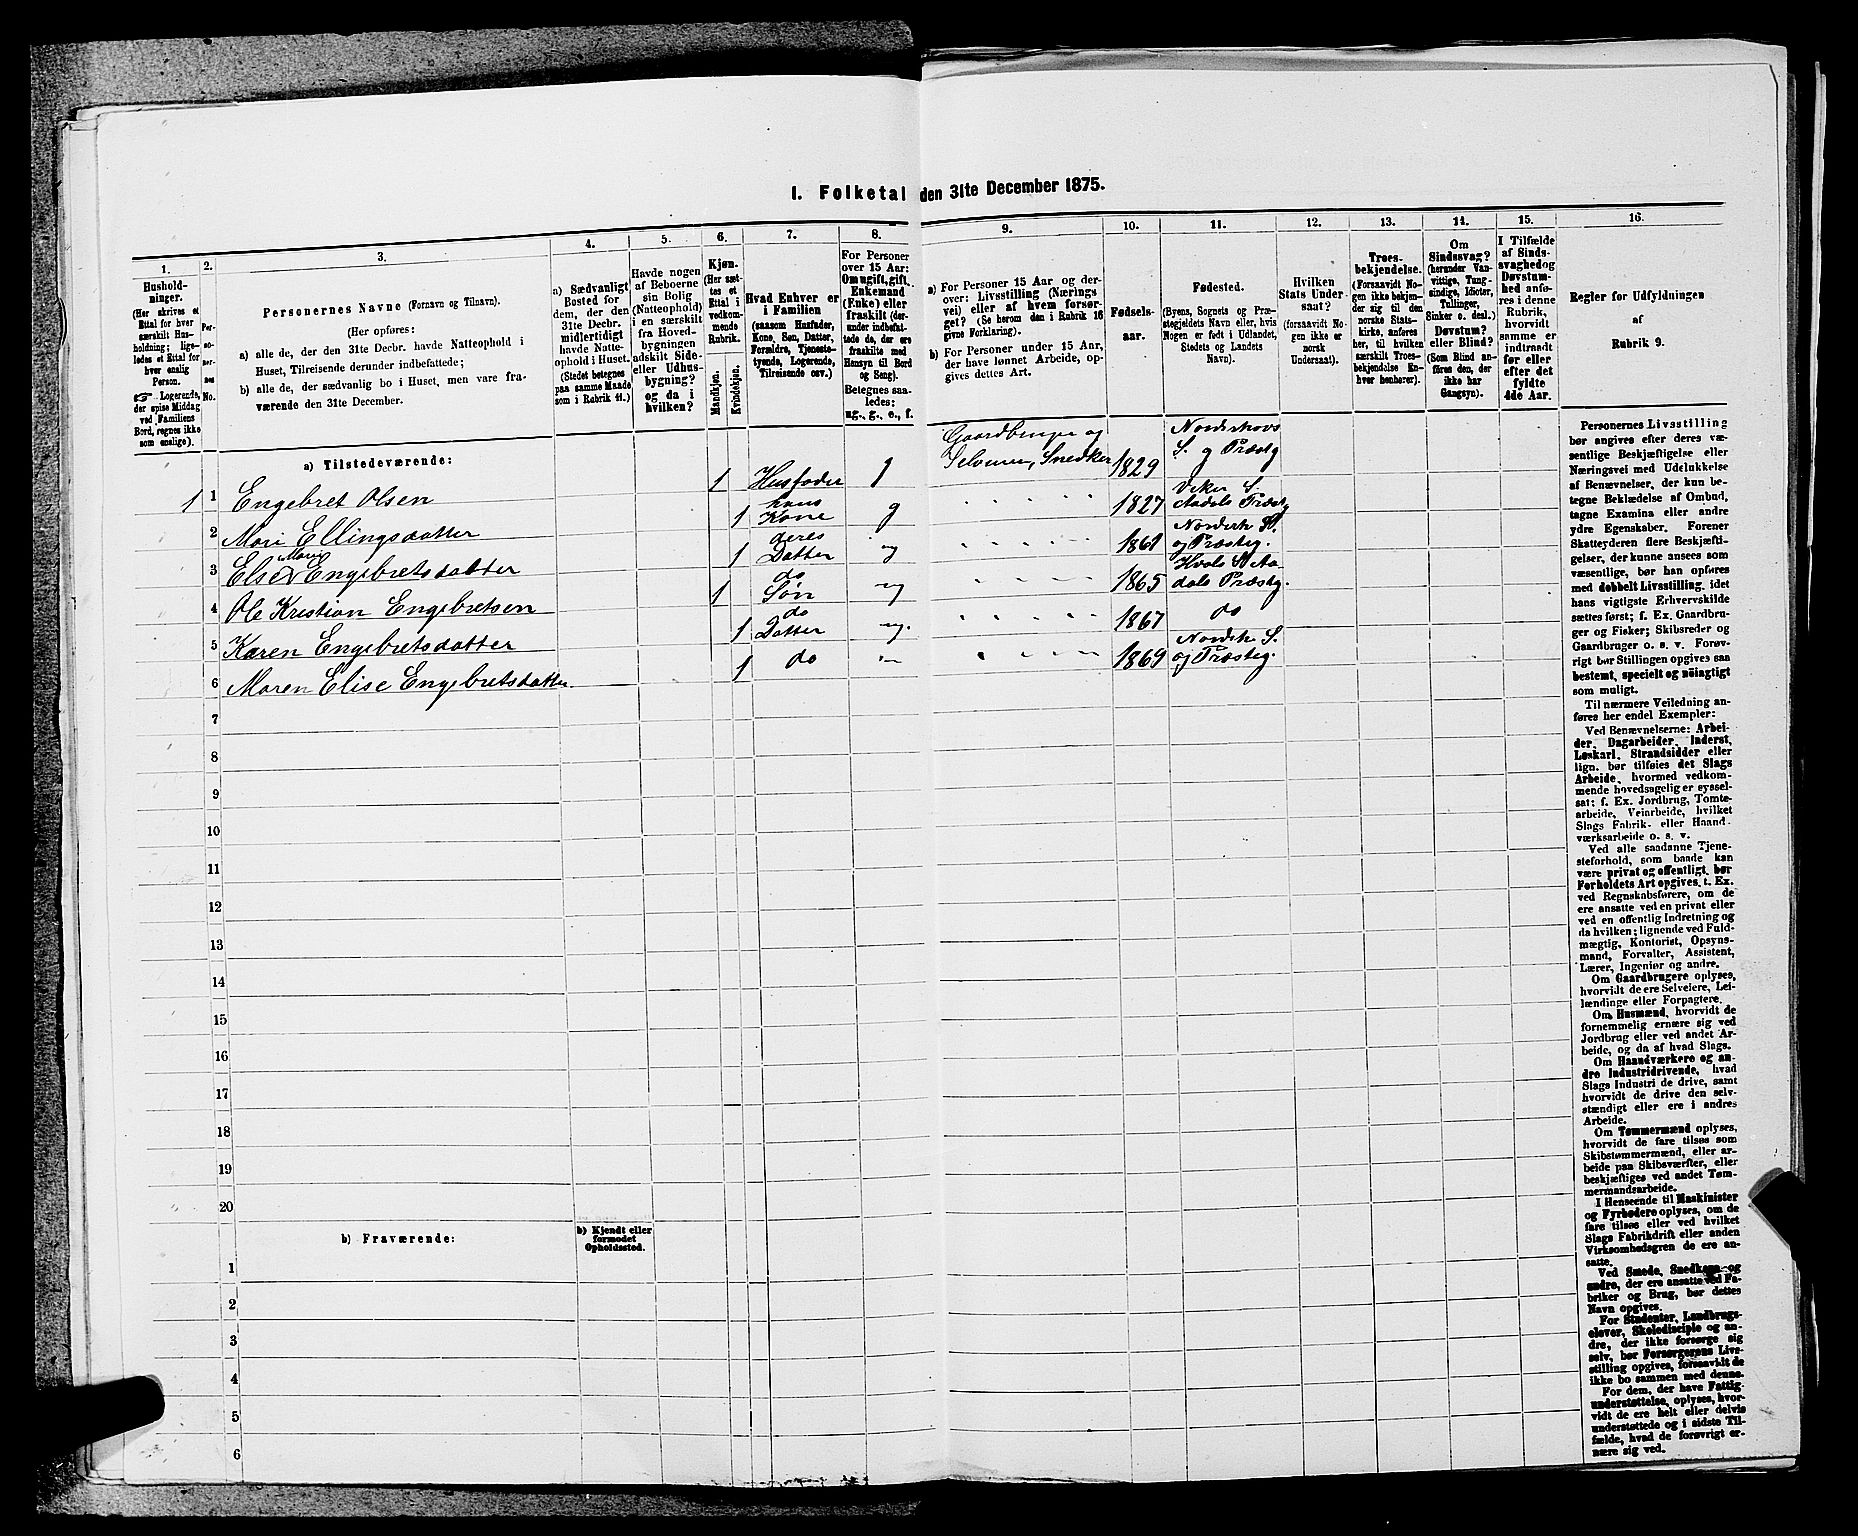 I. Folketal den 31te December 1875.
1.
Hushold-
ninger.
(Her skrives et
Ettal for hver
særskilt Hus-
holdning; lige-
ledes et Ettal for
hver enslig
Person.
☞ Logerende,
der spise Middag
ved Familiens
Bord, regnes ikke
som enslige).
2.
Per-
so-
ner-
nes
No.
3.
Personernes Navne (Fornavn og Tilnavn).
(Her opføres:
a) alle de, der den 31te Decbr. havde Natteophold i
Huset, Tilreisende derunder indbefattede;
b) alle de, der sædvanlig bo i Huset, men vare fra-
værende den 31te December.
4.
a) Sædvanligt
Bosted for
dem, der den
31te Decbr.
midlertidigt
havde Natte-
ophold i Huset.
(Stedet betegnes
paa samme Maade
som i Rubrik 11.)
5.
Havde nogen
af Beboerne
sin Bolig
(Natteophold)
i en særskilt
fra Hoved-
bygningen
adskilt Side-
eller Udhus-
bygning?
og da i
hvilken?
6.
Kjøn.
(Her sæt-
tes et
Ettal i
vedkom-
mende
Rubrik.
Mandkjøn.
Kvindekjøn.
7.
Hvad Enhver er
i Familien
(saasom Husfader,
Kone, Søn, Datter,
Forældre, Tjeneste-
tyende, Logerende,
Tilreisende osv.)
8.
For Personer
over 15 Aar:
Om ugift, gift,
Enkemand
(Enke) eller
fraskilt (der-
under indbefat-
tede de, der ere
fraskilte med
Hensyn til Bord
og Seng).
Betegnes saa-
ledes:
ug., g., e., f.
9.
a) For Personer 15 Aar og der-
over: Livsstilling (Nærings
vei) eller af hvem forsør-
get? (Se herom den i Rubrik 16
givne Forklaring).
b) For Personer under 15 Aar,
der have lønnet Arbeide, op-
gives dettes Art.
10.
Fødsels-
aar.
11.
Fødested.
(Byens, Sognets og Præ-
stegjeldets Navn eller, hvis
Nogen er født i Udlandet,
Stedets og Landets
Navn).
12.
Hvilken
Stats Under-
saat?
(forsaavidt No-
gen ikke er
norsk
Undersaat).
13.
Troes-
bekjendelse.
(Forsaavidt No-
gen ikke bekjen-
der sig til den
norske Stats-
kirke, anføres
her, til hvilken
særskilt Troes-
bekjendelse En-
hver henhører).
14.
Om
Sindssvag?
(herunder Van-
vittige, Tung-
sindige, Idioter,
Tullinger,
Sinker o. desl.)
Døvstum?
eller Blind?
(Som Blind an-
føres den, der
ikke har
Gangsyn).
15.
I Tilfælde
af Sinds-
svaghed og
Døvstum-
hed anfø-
res i denne
Rubrik,
hvorvidt
samme er
indtraadt
før eller
efter det
fyldte
4de Aar.
16.
Regler for Udfyldningen
af
Rubrik 9.
a) Tilstedeværende:
1 1 Engebret Olsen 1 Husfader g Gaardbruger og Selveier, Snedker 1829 Norderhovs S. og Præstg
2 Mari Ellingsdatter 1 hans Kone g 1827 Veker S. Aadals Præstg
3 Else Marie Engebretsdatter 1 deres Datter ug 1861 Norderh. S. og Præsteg.
4 Ole Kristian Engebretsen 1 do Søn ug 1865 Hvals S. Aadals Præstg.
5 Karen Engebretsdatter 1 do Datter ug. 1867 do
6 Maren Elise Engebretsdatter 1 do 1869 Norderh. S. og Præsteg.
7
8
9
10
11
12
13
14
15
16
17
18
19
20
b) Fraværende:
b) Kjendt eller
formodet
Opholdssted.
1
2
3
4
5
6
Personernes Livsstilling
bør angives efter deres væ-
sentlige Beskjæftigelse eller
Næringsvei med Udelukkelse
af Benævnelser, der kun be-
tegne Beklædelse af Ombud,
tagne Examina eller andre
ydre Egenskaber. Forener
Skatteyderen flere Beskjæfti-
gelser, der kunne ansees som
væsentlige, bør han opføres
med dobbelt Livsstilling, idet
hans vigtigste Erhvervskilde
sættes først; f. Ex. Gaardbru-
ger og Fisker; Skibsreder og
Gaardbruger o. s. v. Forøv-
rigt bør Stillingen opgives saa
bestemt, specielt og nøiagtigt
som muligt.
Til nærmere Veiledning an-
føres her endel Exempler:
Ved Benævnelserne: Arbei-
der, Dagarbeider, Inderst,
Løskarl, Strandsidder eller
lign. bør tilføies det Slags
Arbeide, hvormed vedkom-
mende hovedsagelig er syssel-
sat; f. Ex. Jordbrug, Tomte-
arbeide, Veiarbeide, hvilket
Slags Fabrik- eller Haand-
værksarbeide o. s. v.
Ved alle saadanne Tjene-
steforhold, som baade kan
være privat og offentligt, bør
Forholdets Art opgives, t. Ex.
ved Regnskabsførere, om de
ere ansatte ved en privat eller
ved en offentlig Indretning og
da hvilken; lignende ved Fuld-
mægtig, Kontorist, Opsyns-
mand, Forvalter, Assistent,
Lærer, Ingeniør og andre.
Om Gaardbrugere oplyses,
hvorvidt de ere Selveiere, Lei-
lændinge eller Forpagtere.
Om Husmænd, hvorvidt de
fornemmelig ernære sig ved
Jordbrug eller ved andet Ar-
beide, og da af hvad Slags.
Om Haandværkere og an-
dre Industridrivende, hvad
Slags Industri de drive, samt
hvorvidt de drive den selv-
stændigt eller ere i andres
Arbeide.
Om Tømmermænd oplyses,
hvorvidt de fare tilsøs som
Skibstømmermænd, eller ar-
beide paa Skibsværfter, eller
beskjæftiges ved andet Tøm-
mermandsarbeide.
I Henseende til Maskinister
og Fyrbødere oplyses, om de
fare tilsøs eller ved hvilket
Slags Fabrikdrift eller anden
Virksomhedsgren de ere an-
satte.
Ved Smede, Snedkere og
andre, der ere ansatte ved Fa-
briker og Brug, bør dettes
Navn opgives.
For Studenter, Landbrugs-
elever, Skoledisciple og an-
dre, der ikke forsørge sig
selv, bør Forsørgerens Livs-
stilling opgives, forsaavidt de
ikke bo sammen med denne.
For dem, der have Fattig-
understøttelse, oplyses, hvor-
vidt de ere helt eller delvis
understøttede og i sidste Til-
fælde, hvad de forøvrigt er-
nære sig ved.